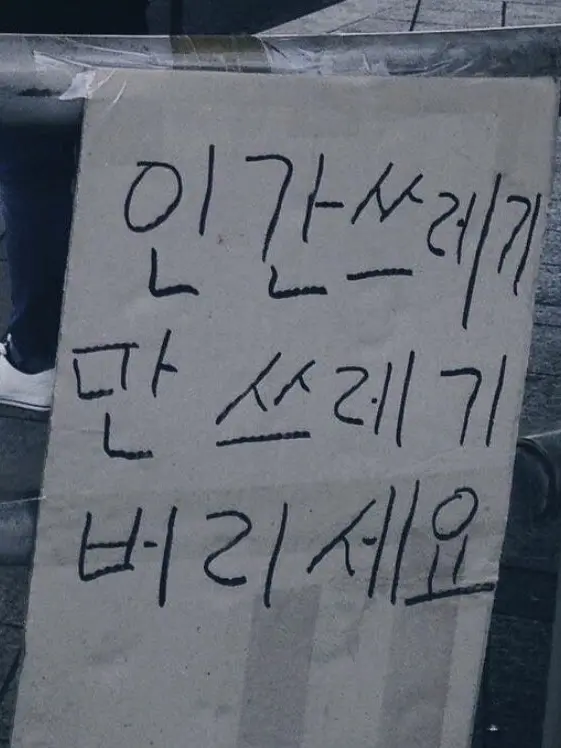 인간쓰레기
만 쓰레기
버리세요